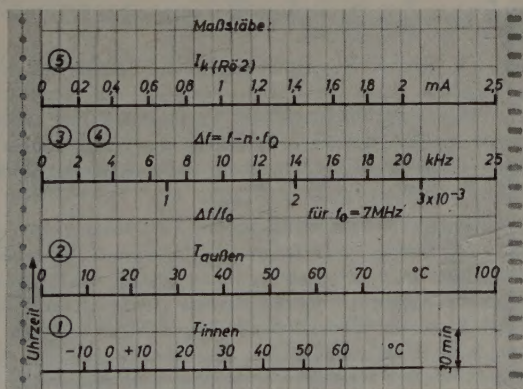 Maßstäbe:
⑤ I k (Rö 2)
0 0,2 0,4 0,6 0,8 1 1,2 1,4 1,6 1,8 2 mA 2,5
③ ④ Δf = f - n · fQ
0 2 4 6 8 10 12 14 16 18 20 kHz 25
1 2 3x10⁻³
Δf/f₀ für f₀ = 7MHz
② Taußen
0 10 20 30 40 50 60 70 °C 100
① Tinnen
-10 0 +10 20 30 40 50 60 °C
Uhrzeit
30 min